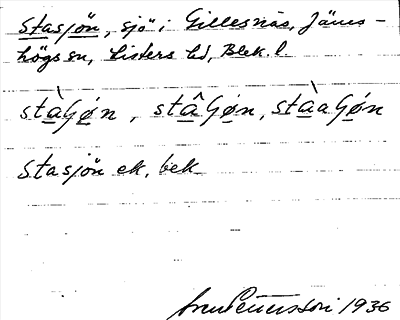 Stasjön, sjö i Gillesnäs, Jäms-
högs sn, Listers hd, Blek. l.
stàʃøn, stâʃøn, stàaʃøn
Stasjön ek. bek.
Pettersson 1936